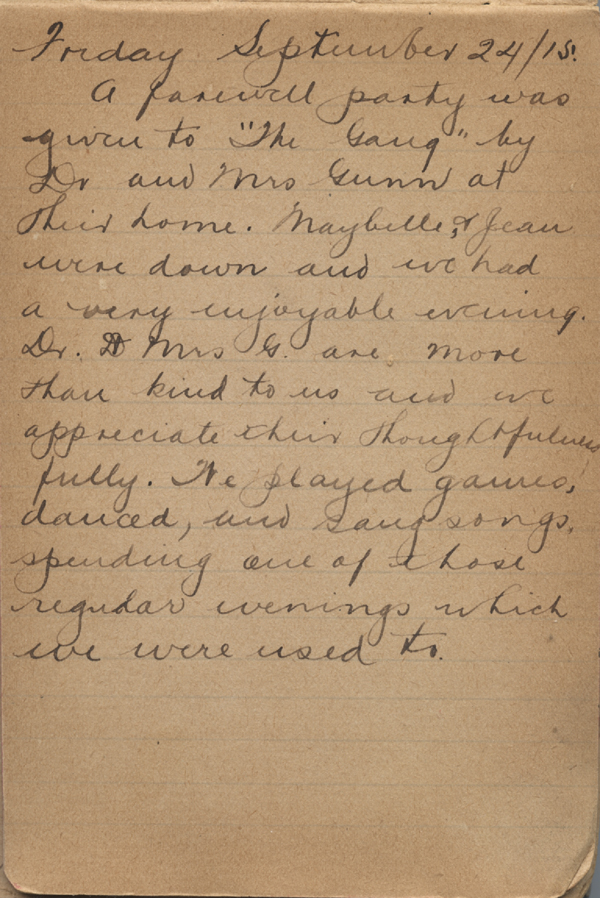 Friday September 24/15.
A farewell party was
given to "The Gang" by
Dr and Mrs Gunn at
their home. Maybelle, & Jean
were down and we had
a very enjoyable evening.
Dr. & Mrs G. are more
than kind to us and we
appreciate their thoughtfulness
fully. We played games,
danced, and sang songs,
spending one of those
regular evenings which
we were used to.